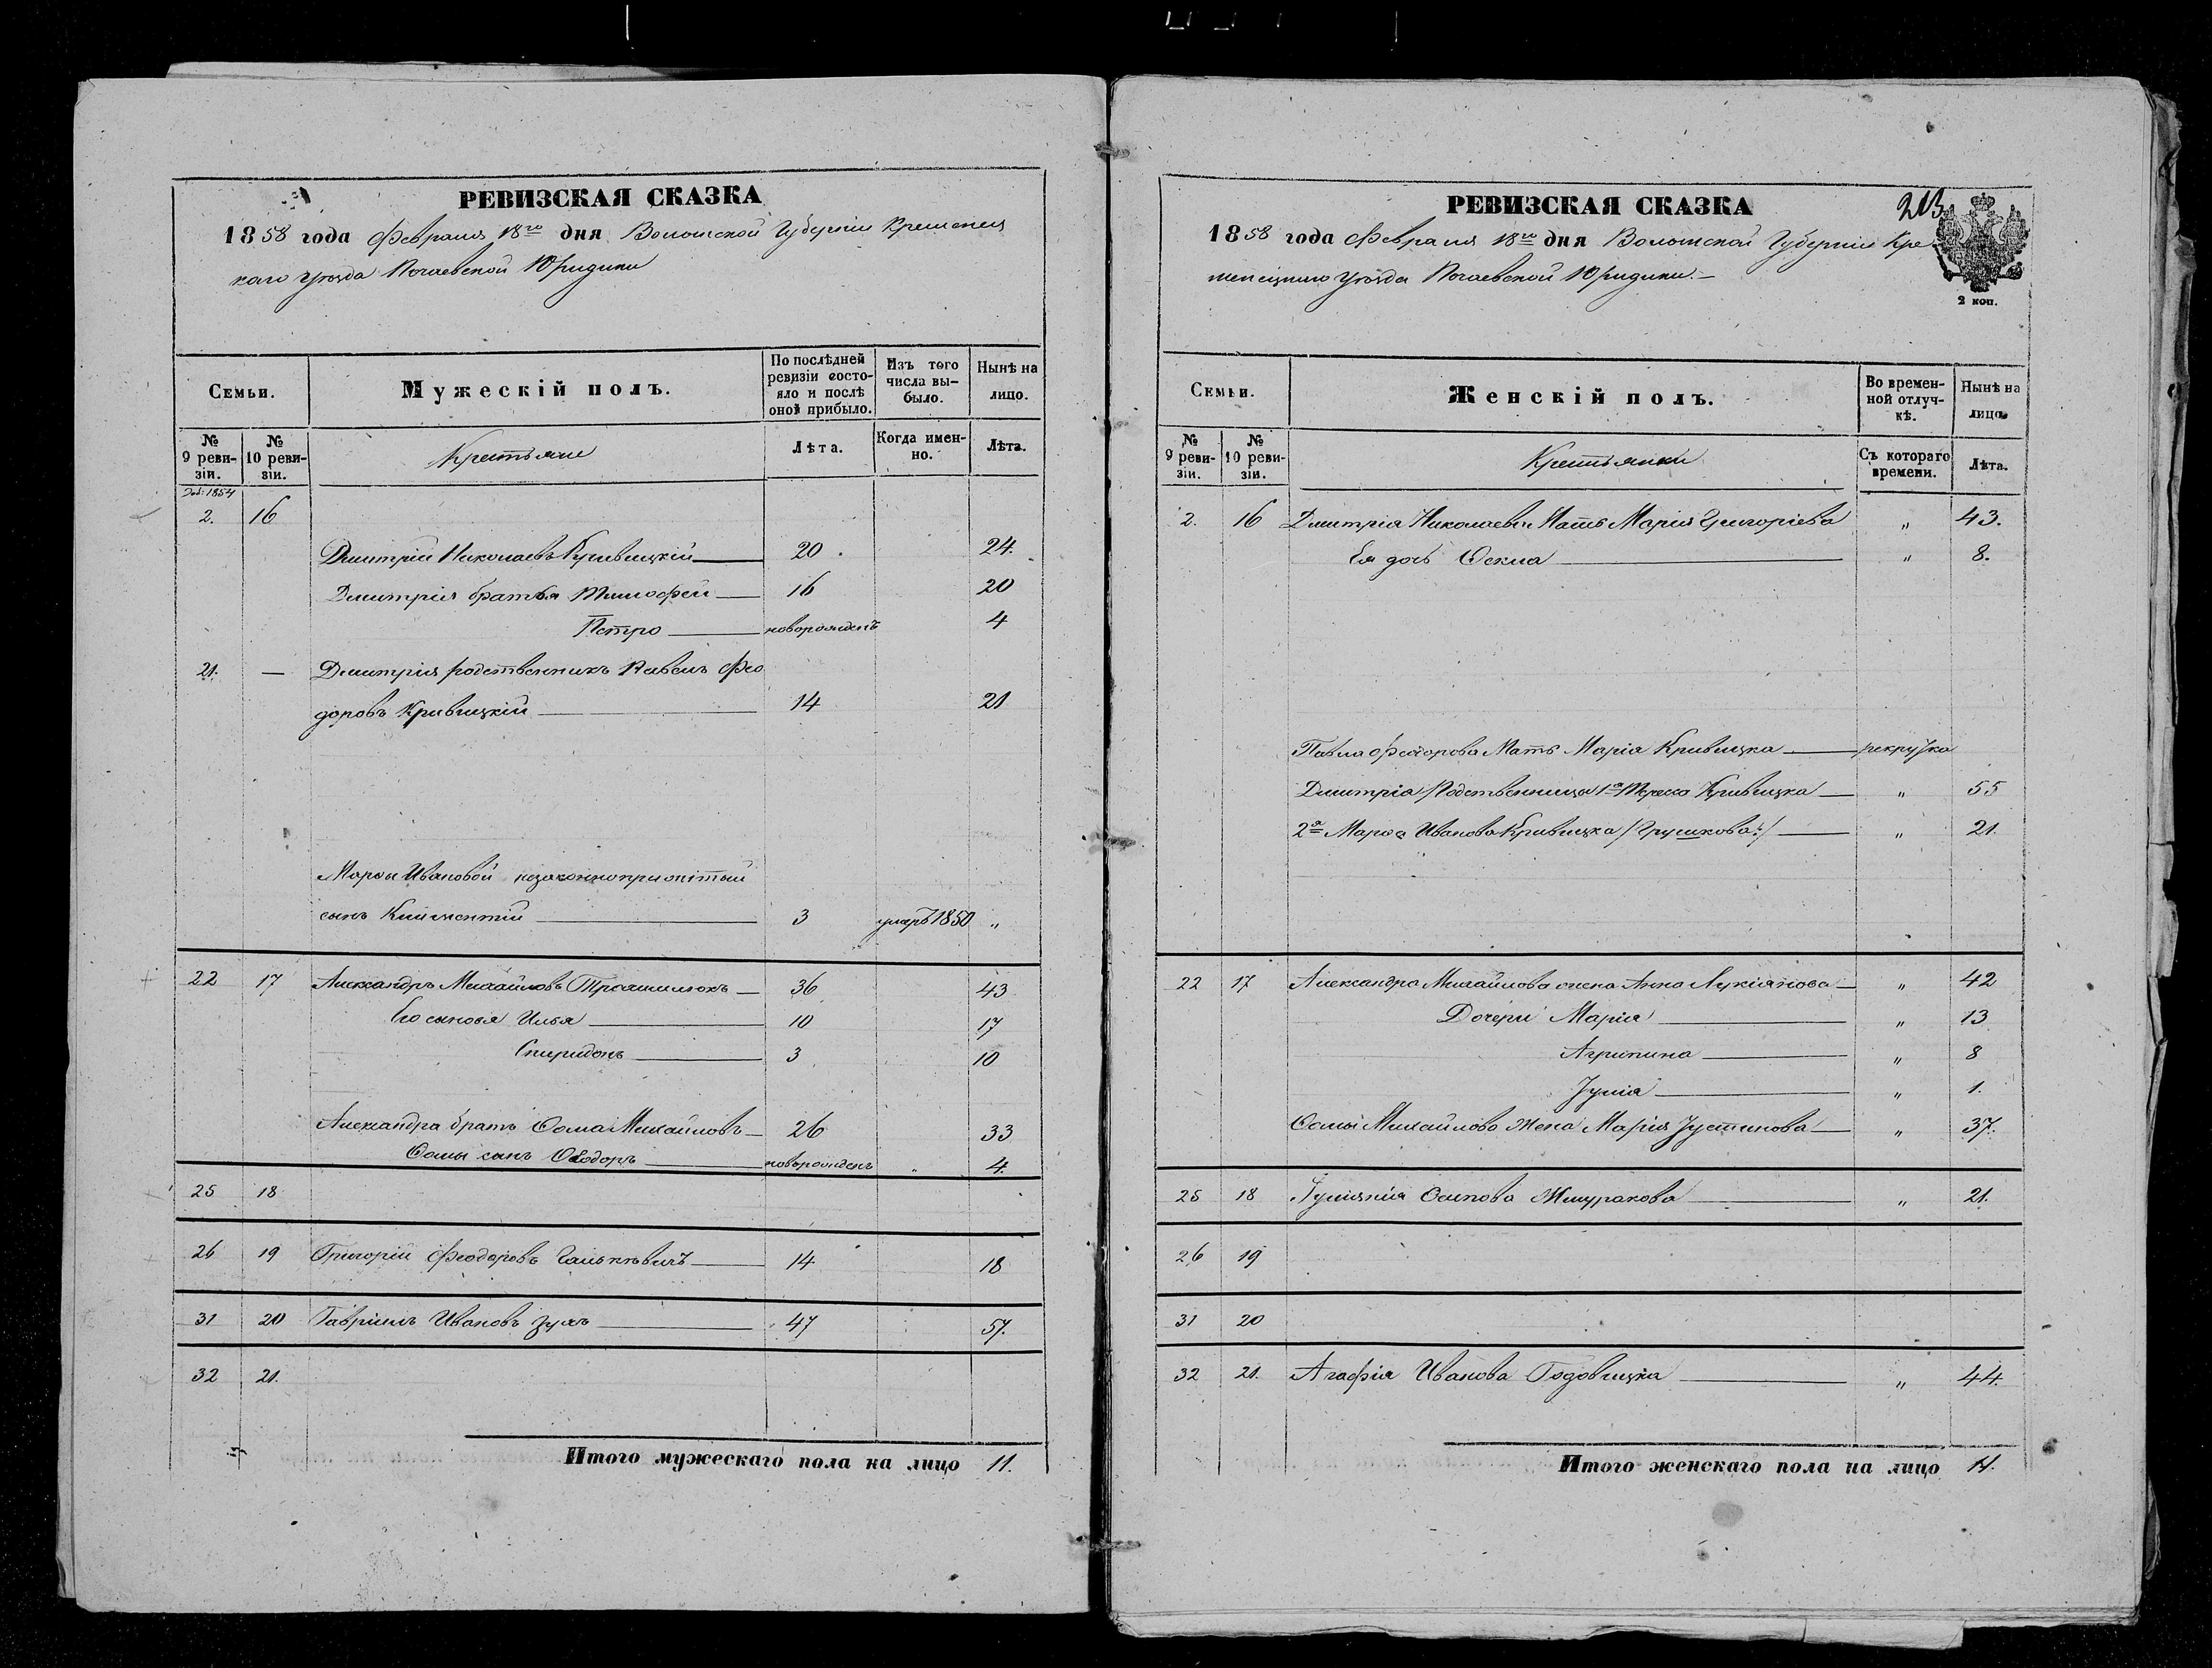 РЕВИЗСКАЯ СКАЗКА
1858 года Февраля 18го дня Волынской Губерніи Кременец
каго Уѣзда Почаевской Юридики
Семьи.
Мужескій полъ.
По послѣдней ревизіи состо-
яло и послѣ оной прибыло.
Изъ того числа вы-
было.
Нынѣ на лицо.
№ 9 реви-
зіи.
№ 10 реви-
зіи.
Крестьяне
Лѣта.
Когда имен-
но.
Лѣта.
Доп: 1854
2. 16
Дмитрій Николаевъ Кривицкій 20. 24.
Дмитрія братья Тимофей 16 20
Петро новорожденъ 4
21. — Дмитрія родственникъ Павелъ Фео
доровъ Кривицкій 14 21
Марѳы Ивановой незаконноприжитый
сынъ Климентій 3 умеръ 1850 "
22 17 Александръ Михайловъ 36 43
Его сыновья Илья 10 17
Спиридонъ 3 10
Александра братъ Ѳома Михайловъ 26 33
Ѳомы сынъ Ѳеодоръ новорожденъ " 4.
25 18
26 19 Григорій Феодоровъ 14 18
31 20 Гавріилъ Ивановъ 47 57.
32 21.
Итого мужескаго пола на лицо 11.
РЕВИЗСКАЯ СКАЗКА
213
1858 года Февраля 18го дня Волынской Губерніи Кре
менецкаго Уѣзда Почаевской Юридики.—
2 коп.
Семьи.
Женскій полъ.
Во времен-
ной отлуч-
кѣ.
Нынѣ на лицо
№ 9 реви-
зіи.
№ 10 реви-
зіи.
Крестьянки
Съ котораго времени.
Лѣта.
2. 16 Дмитрія Николаева Мать Марія Григоріева " 43.
Ея дочь " 8.
Павла Феодорова Мать Марія Кривицка рекрутка
Дмитрія Родственницы 1я Кривицка " 55
2я Марѳа Иванова Кривицка " 21.
22 17 Александра Михайлова жена Анна Лукіянова " 42
Дочери Марія " 13
Агрипина " 8
Јулія " 1.
Ѳомы Михайлова Жена Марія Јустинова " 37.
25 18 Осипова " 21.
26 19
31 20
32 21. Агафія Иванова Годовицка " 44.
Итого женскаго пола на лицо 11.